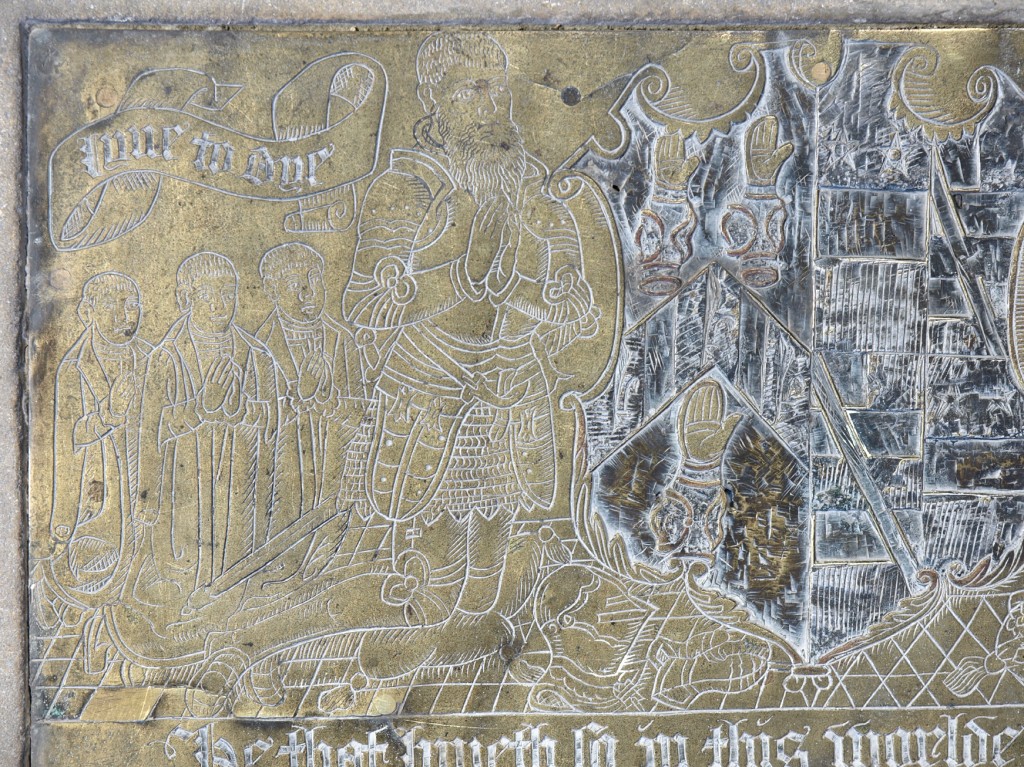 lyue to dye
He that lyueth so in this worlde